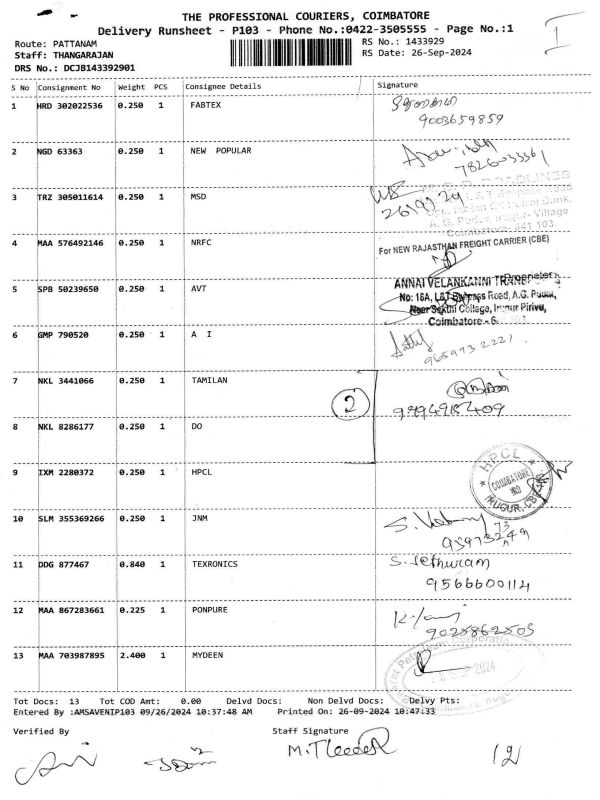 THE PROFESSIONAL COURIERS, COIMBATORE
Delivery Runsheet - P103 - Phone No.:0422-3505555 - Page No.:1
Route: PATTANAM RS No.: 1433929
Staff: THANGARAJAN RS Date: 26-Sep-2024
DRS No.: DCJB143392901
I
S No Consignment No Weight PCS Consignee Details Signature
1 HRD 302022536 0.250 1 FABTEX
9003659859
2 NGD 63363 0.250 1 NEW POPULAR
3 TRZ 305011614 0.250 1 MSD
26/9/24
A. G. Pudur, Irugur- Village
Coimbatore- 641 103.
4 MAA 576492146 0.250 1 NRFC For NEW RAJASTHAN FREIGHT CARRIER (CBE)
Proprieter
5 SPB 50239650 0.250 1 AVT ANNAI VELANKANNI
No: 16A, L&T Bypass Road, A.G. Pudur,
Near Sakthi College, Irugur Pirivu,
Coimbatore - 6
6 GMP 790520 0.250 1 A I
9659732221
7 NKL 3441066 0.250 1 TAMILAN
2
8 NKL 8286177 0.250 1 DO
9 IXM 2280372 0.250 1 HPCL HPCL
COIMBATORE
IRUGUR, CBE
10 SLM 355369266 0.250 1 JNM
11 DDG 877467 0.840 1 TEXRONICS S. Sethuram
9566600114
12 MAA 867283661 0.225 1 PONPURE
9025862503
13 MAA 703987895 2.400 1 MYDEEN
SEP 2024
Tot Docs: 13 Tot COD Amt: 0.00 Delvd Docs: Non Delvd Docs: Delvy Pts:
Entered By :AMSAVENIP103 09/26/2024 10:37:48 AM Printed On: 26-09-2024 10:47:33
Verified By Staff Signature
12